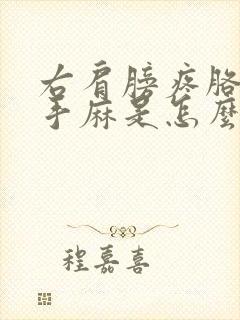 右肩膀疼胳
手麻是怎麼
程嘉喜